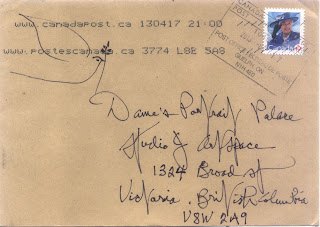 www.canadapost.ca 130417 21:00
www.postescanada.ca 3774 L8E 5A8
CANADA
POST
GUELPH, ON
Canada
Dame's Portrait Palace
Studio J artspace
1324 Broad st
Victoria. British Columbia
V8W 2A9